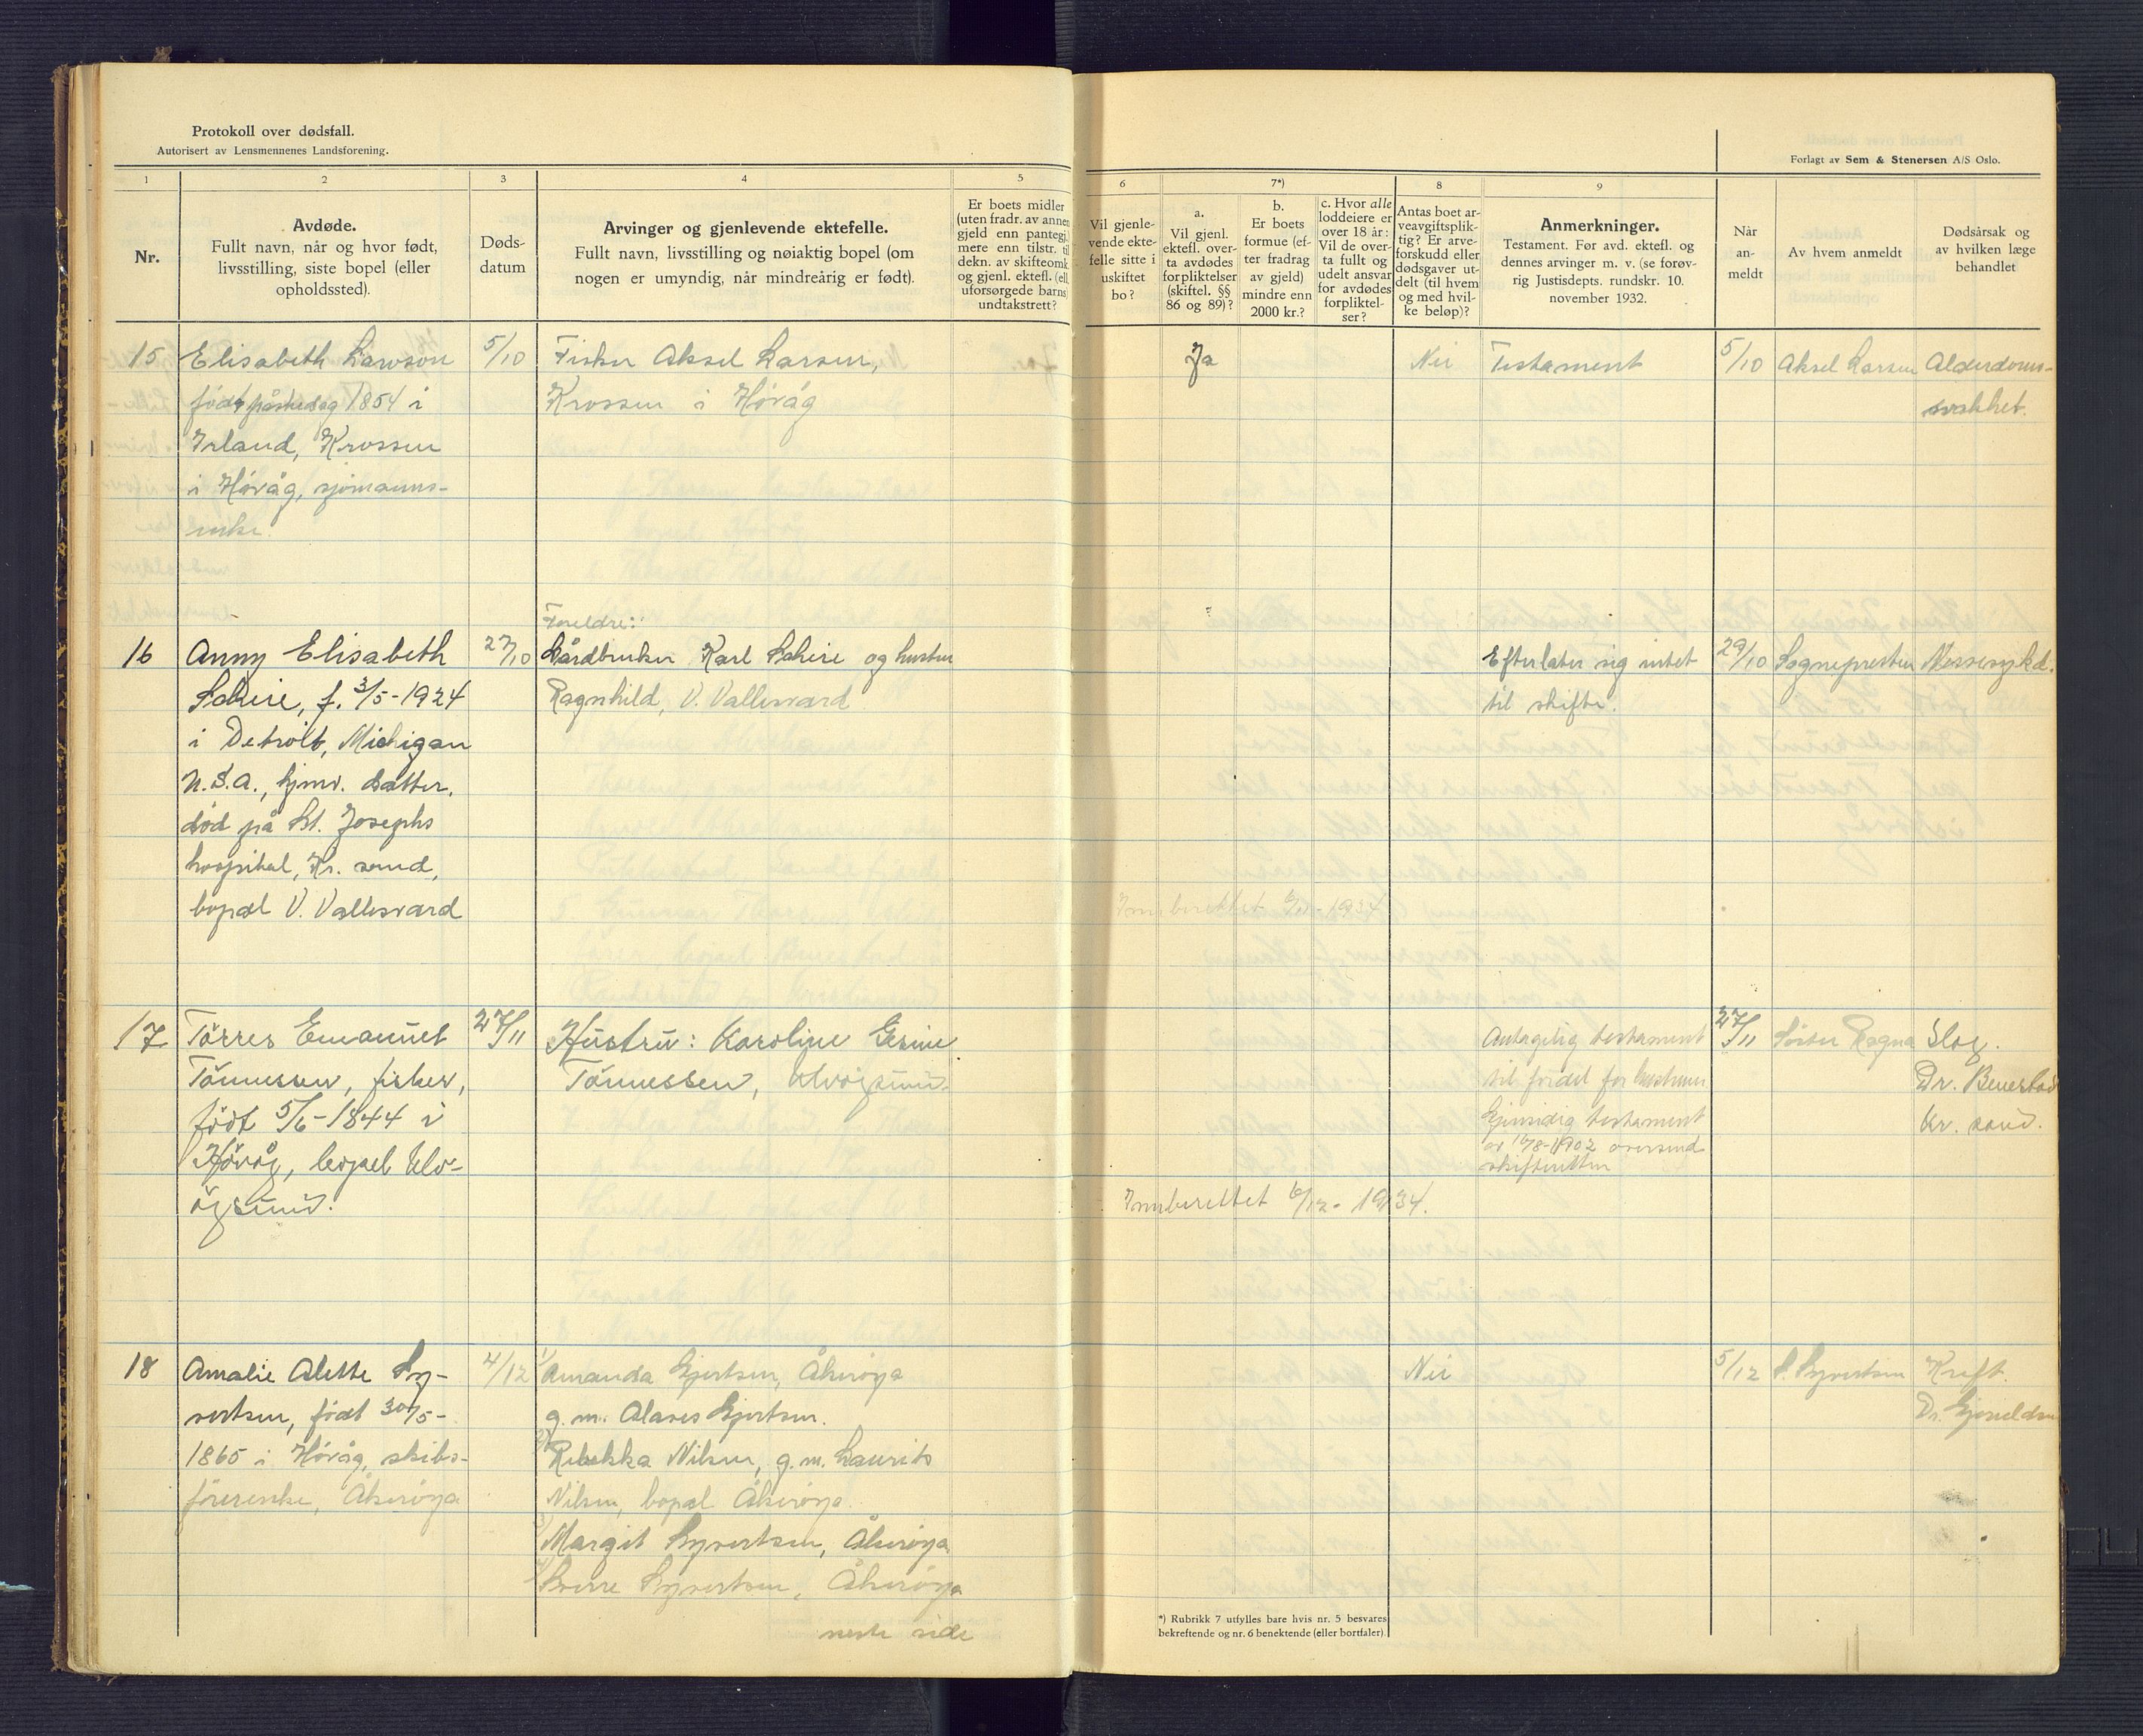 Protokoll over dødsfall.
Autorisert av Lensmennenes Landsforening.
Forlagt av Sem & Stenersen A/S Oslo.
1
2
3
4
5
6
7*)
8
9
Nr.
Avdøde.
Fullt navn, når og hvor født,
livsstilling, siste bopel (eller
opholdssted).
Døds-
datum
Arvinger og gjenlevende ektefelle.
Fullt navn, livsstilling og nøiaktig bopel (om
nogen er umyndig, når mindreårig er født).
Er boets midler
(uten fradr. av annen
gjeld enn pantegj.)
mere enn tilstr. til
dekn. av skifteomk.
og gjenl. ektef. (ell.
uforsørgede barns)
undtakstrett?
Vil gjenle-
vende ekte-
felle sitte i
uskiftet
bo?
a.
Vil gjenl.
ektefl. over-
ta avdødes
forpliktelser
(skiftel. §§
86 og 89)?
b.
Er boets
formue (ef-
ter fradrag
av gjeld)
mindre enn
2000 kr.?
c. Hvor alle
loddeiere er
over 18 år:
Vil de over-
ta fullt og
udelt ansvar
for avdødes
forpliktel-
ser?
Antas boet ar-
veavgiftsplik-
tig? Er arve-
forskudd eller
dødsgaver ut-
delt (til hvem
og med hvil-
ke beløp)?
Anmerkninger.
Testament. Før avd. ektefl. og
dennes arvinger m. v. (se forøv-
rig Justisdepts. rundskr. 10.
november 1932.
Når
an-
meldt
Av hvem anmeldt
Dødsårsak og
av hvilken læge
behandlet
15
Elisabeth Lawson
født påskedag 1854 i
Irland, Krossen
i Høvåg, sjømanns-
enke.
5/10
Fisker Aksel Larsen,
Krossen i Høvåg
Ja
Nei
Testament
5/10
Aksel Larsen
Alderdoms-
svakhet.
16
Anny Elisabeth
Scheie, f. 3/5-1924
i Detroit, Michigan
U.S.A., hjmv. datter,
død på St. Josephs
hospital, Kr. sand,
bopæl V. Vallesværd
27/10
Foreldre:
Gårdbruker Karl Scheie og hustru
Ragnhild, V. Vallesværd
Efterlater sig intet
til skifte.
29/10
Sognepresten
Nessesykd.
Innberettet 6/11-1934
17
Tørres Emanuel
Tönnessen, fisker,
født 5/6-1844 i
Høvåg, bopel Ulv-
øysund.
27/11
Hustru: Karoline Gesine
Tönnessen, Ulvøysund.
Antagelig testament
til fordel for hustruen
Gjensidig testament
av 1902 oversend
skifteretten
27/11
Søster Ragna
Slag.
Dr. Benestad
Kr. sand.
Innberettet 6/12-1934.
18
Amalie Alette Sy-
vertsen, født 30/5-
1865 i Høvåg, skibs-
førerenke, Åkerøya
4/12
1) Amanda Gjertsen, Åkerøya
g. m. Alares Gjertsen.
2) Rebekka Nilsen, g. m. Laurits
Nilsen, bopæl Åkerøya.
3) Margit Syvertsen, Åkerøya
4) Sverre Syvertsen, Åkerøya
neste side
Nei
5/12
S. Syvertsen
Kreft.
Dr.
*) Rubrikk 7 utfylles bare hvis nr. 5 besvares
bekreftende og nr. 6 benektende (eller bortfaler).